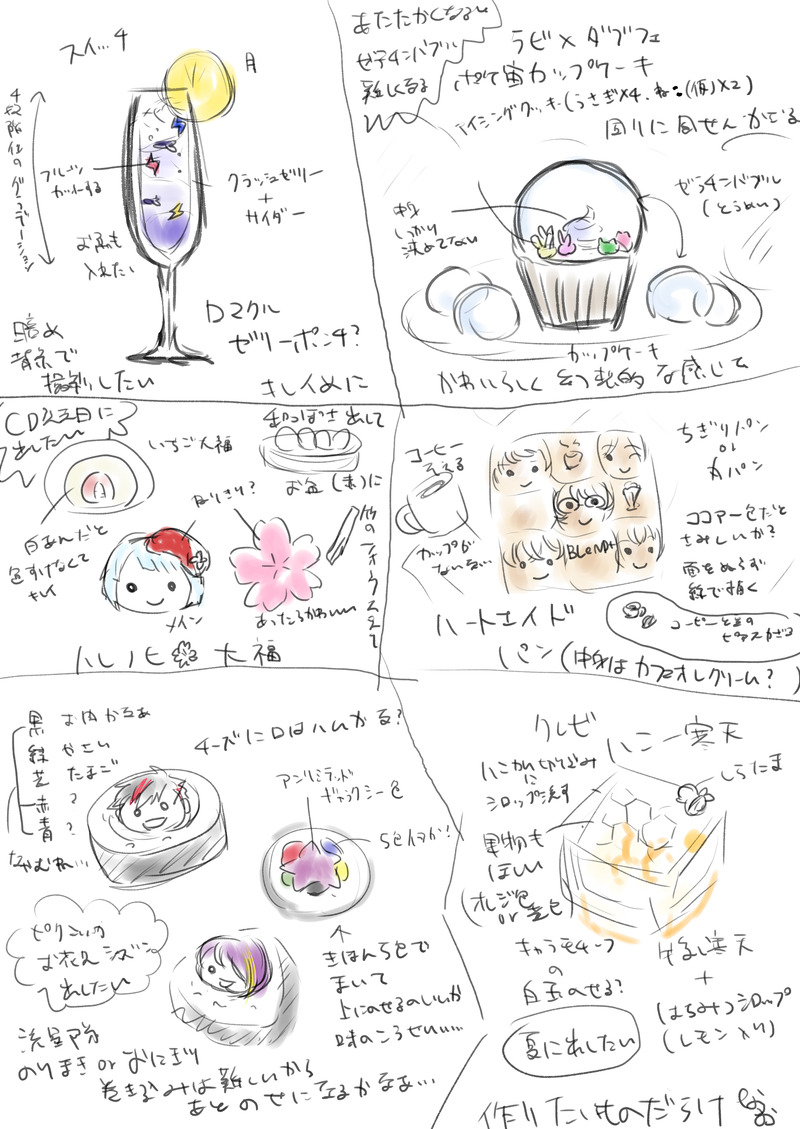 スイッチ
月
4段階位のグラデーション
フルーツ
かためる
クラッシュゼリー
+
サイダー
お魚も
入れたい
暗め
背景で
撮影したい
ロマクル
ゼリーポンチ?
キレイめに
あたたかくなると
ゼラチンバブル
難しくなる
ラビ×ダブフェ
カップケーキ
アイシングクッキー(うさぎ×4、ねこ(仮)×2)
回りに風せんかざる
中身
しっかり
決めてない
ゼラチンバブル
(とうめい)
カップケーキ
かわいらしく幻想的な感じで
CD発売日に
出したい
いちご大福
白あんだと
色すけなくて
キレイ
和っぽさ出して
お盆(赤)に
ねりきり?
メイン
あったらかわいい
竹のフォークそえて
ハレノヒ 大福
コーヒー
そえる
カップが
ないなぁ…
BLEND+
ちぎりパン
or
丸パン
ココアー色だと
さみしいか?
面をぬらず
線で描く
コーヒーと豆の
ピアスかざる
ハートエイド
パン(中身はカフェオレクリーム?)
黒 お肉かなぁ
緑 やさい
芝 たまご
赤 ?
青 ?
なやむね…
チーズにロはハムかな?
アンリミテッド
ギャラクシー色
5色入るか?
ピクニックの
お花見シーズンに
出したい
↑
きほん5色で
まいて
上にのせるのいいか
味のこうせいい…
流星隊
のりまき or おにぎり
巻きこみは難しいから
あとのせになるかなぁ…
クレビ
ハニー寒天
しらたま
ハニカム切りこみ
に
シロップ流す
果物も
ほしい
(オレンジ色
or 黄色)
キャラモチーフ
の
白玉のせる?
牛乳寒天
+
(はちみつ)シロップ
(レモン入り)
夏に出したい
作りたいものだらけ